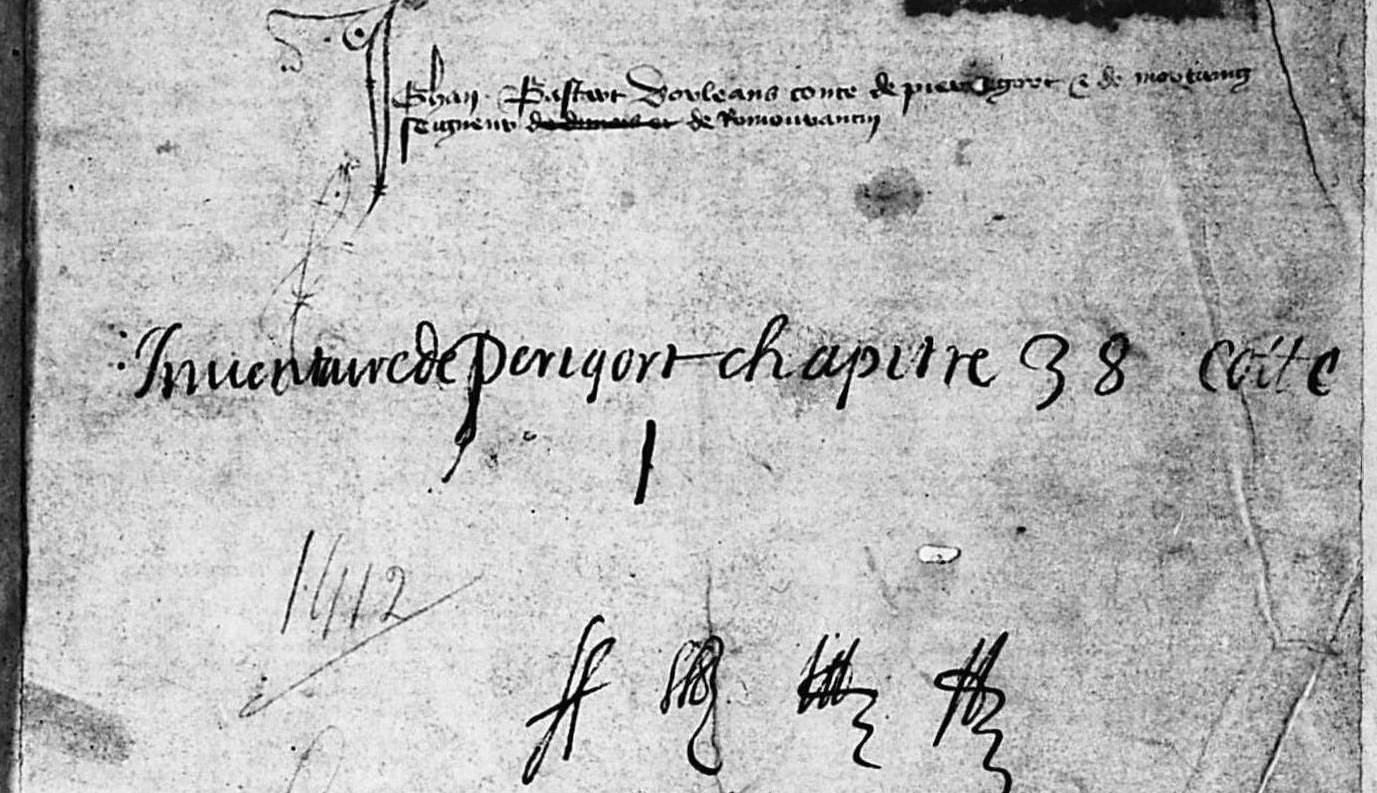 Jehan Bastart dorleans conte de pierregort & de mortaing
seigneur de Romourantin
Inuentaire de perigort chapitre 38 coste
1
1412